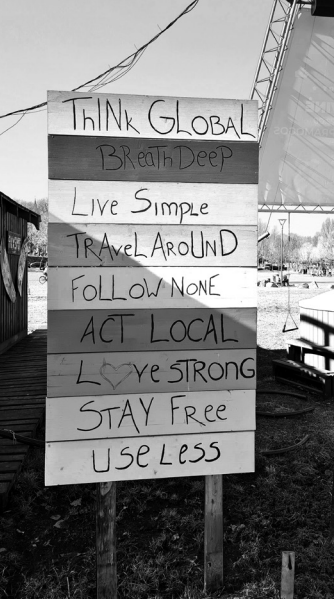 THINk GLOBAL
BReaTh DeeP
LIve SImpLe
TRAveL AROUND
FOLLOW NONE
ACT LOCAL
L♡ve STRONG
STAY FRee
USe Less